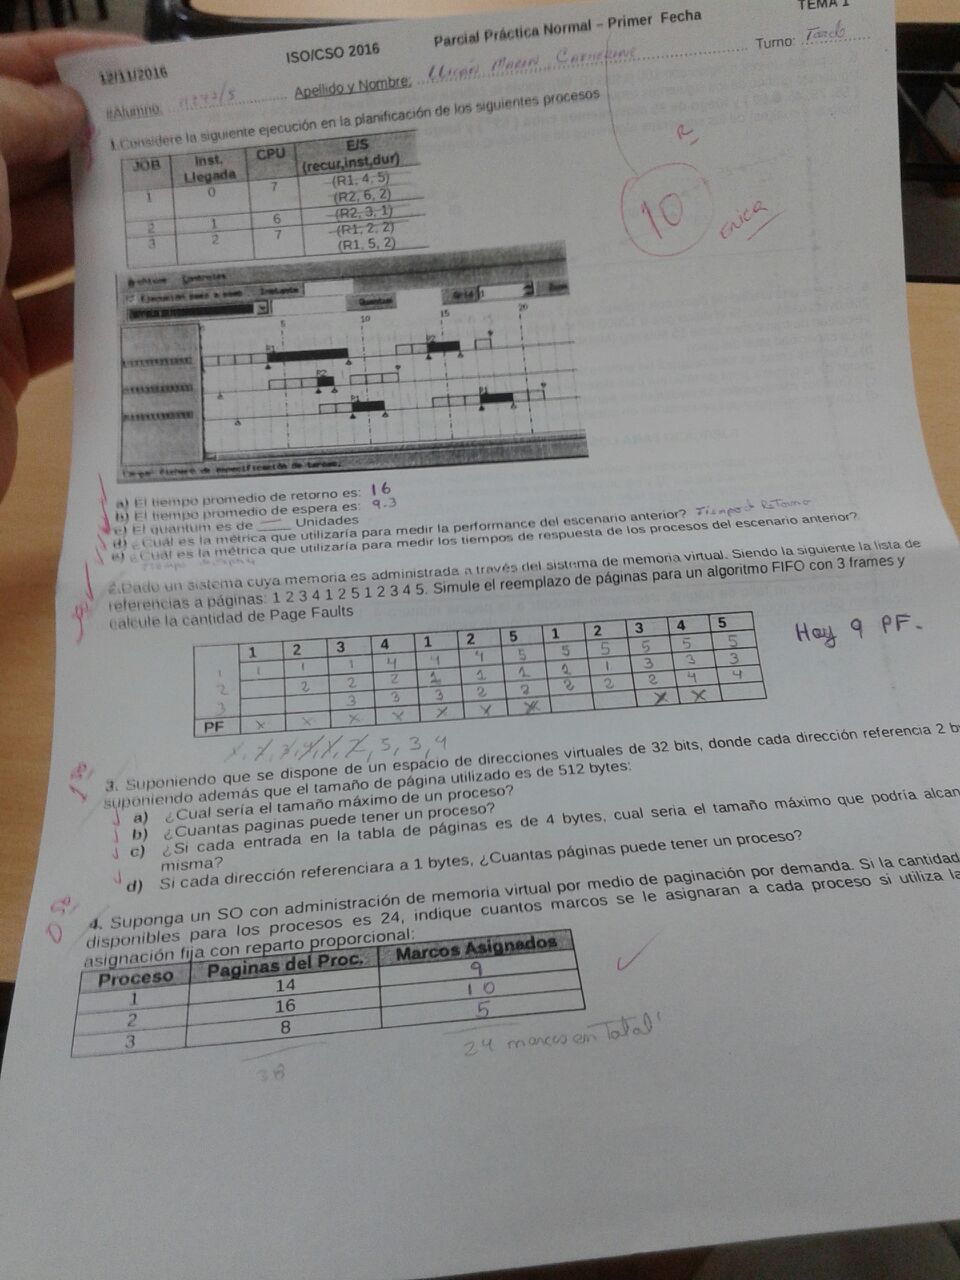 TEMA 1
12/11/2016 ISO/CSO 2016 Parcial Práctica Normal – Primer Fecha
#Alumno: Apellido y Nombre: Turno: Tarde
1.Considere la siguiente ejecución en la planificación de los siguientes procesos
JOB Inst. Llegada CPU E/S (recur,inst,dur)
1 0 7 (R1, 4, 5)
(R2, 6, 2)
2 1 6 (R2, 3, 1)
3 2 7 (R1, 2, 2)
(R1, 5, 2)
R
10
Erica
Archivos Controles
Ejecución paso a paso Instante
Quantum Grid 1 Zoom
5 10 15 20
R1 R2
R2
R1 R1
Cargar fichero de especificación de tareas.
a) El tiempo promedio de retorno es: 16
b) El tiempo promedio de espera es: 9.3
c) El quantum es de ____ Unidades
d) ¿Cuál es la métrica que utilizaría para medir la performance del escenario anterior? Tiempo d Retorno
e) ¿Cuál es la métrica que utilizaría para medir los tiempos de respuesta de los procesos del escenario anterior?
Tiempo
2.Dado un sistema cuya memoria es administrada a través del sistema de memoria virtual. Siendo la siguiente la lista de
referencias a páginas: 1 2 3 4 1 2 5 1 2 3 4 5. Simule el reemplazo de páginas para un algoritmo FIFO con 3 frames y
calcule la cantidad de Page Faults
1 2 3 4 1 2 5 1 2 3 4 5
1 1 1 1 4 4 4 5 5 5 5 5 5
2 2 2 2 1 1 1 1 1 3 3 3
3 3 3 3 2 2 2 2 2 4 4
PF x x x x x x x x x
Hay 9 PF.
1, 2, 3, 4, 1, 2, 5, 3, 4
3. Suponiendo que se dispone de un espacio de direcciones virtuales de 32 bits, donde cada dirección referencia 2 by
suponiendo además que el tamaño de página utilizado es de 512 bytes:
a) ¿Cual sería el tamaño máximo de un proceso?
b) ¿Cuantas paginas puede tener un proceso?
c) ¿Si cada entrada en la tabla de páginas es de 4 bytes, cual seria el tamaño máximo que podría alcan
misma?
d) Si cada dirección referenciara a 1 bytes, ¿Cuantas páginas puede tener un proceso?
4. Suponga un SO con administración de memoria virtual por medio de paginación por demanda. Si la cantidad
disponibles para los procesos es 24, indique cuantos marcos se le asignaran a cada proceso si utiliza la
asignación fija con reparto proporcional:
Proceso Paginas del Proc. Marcos Asignados
1 14 9
2 16 10
3 8 5
38 24 marcos en Total